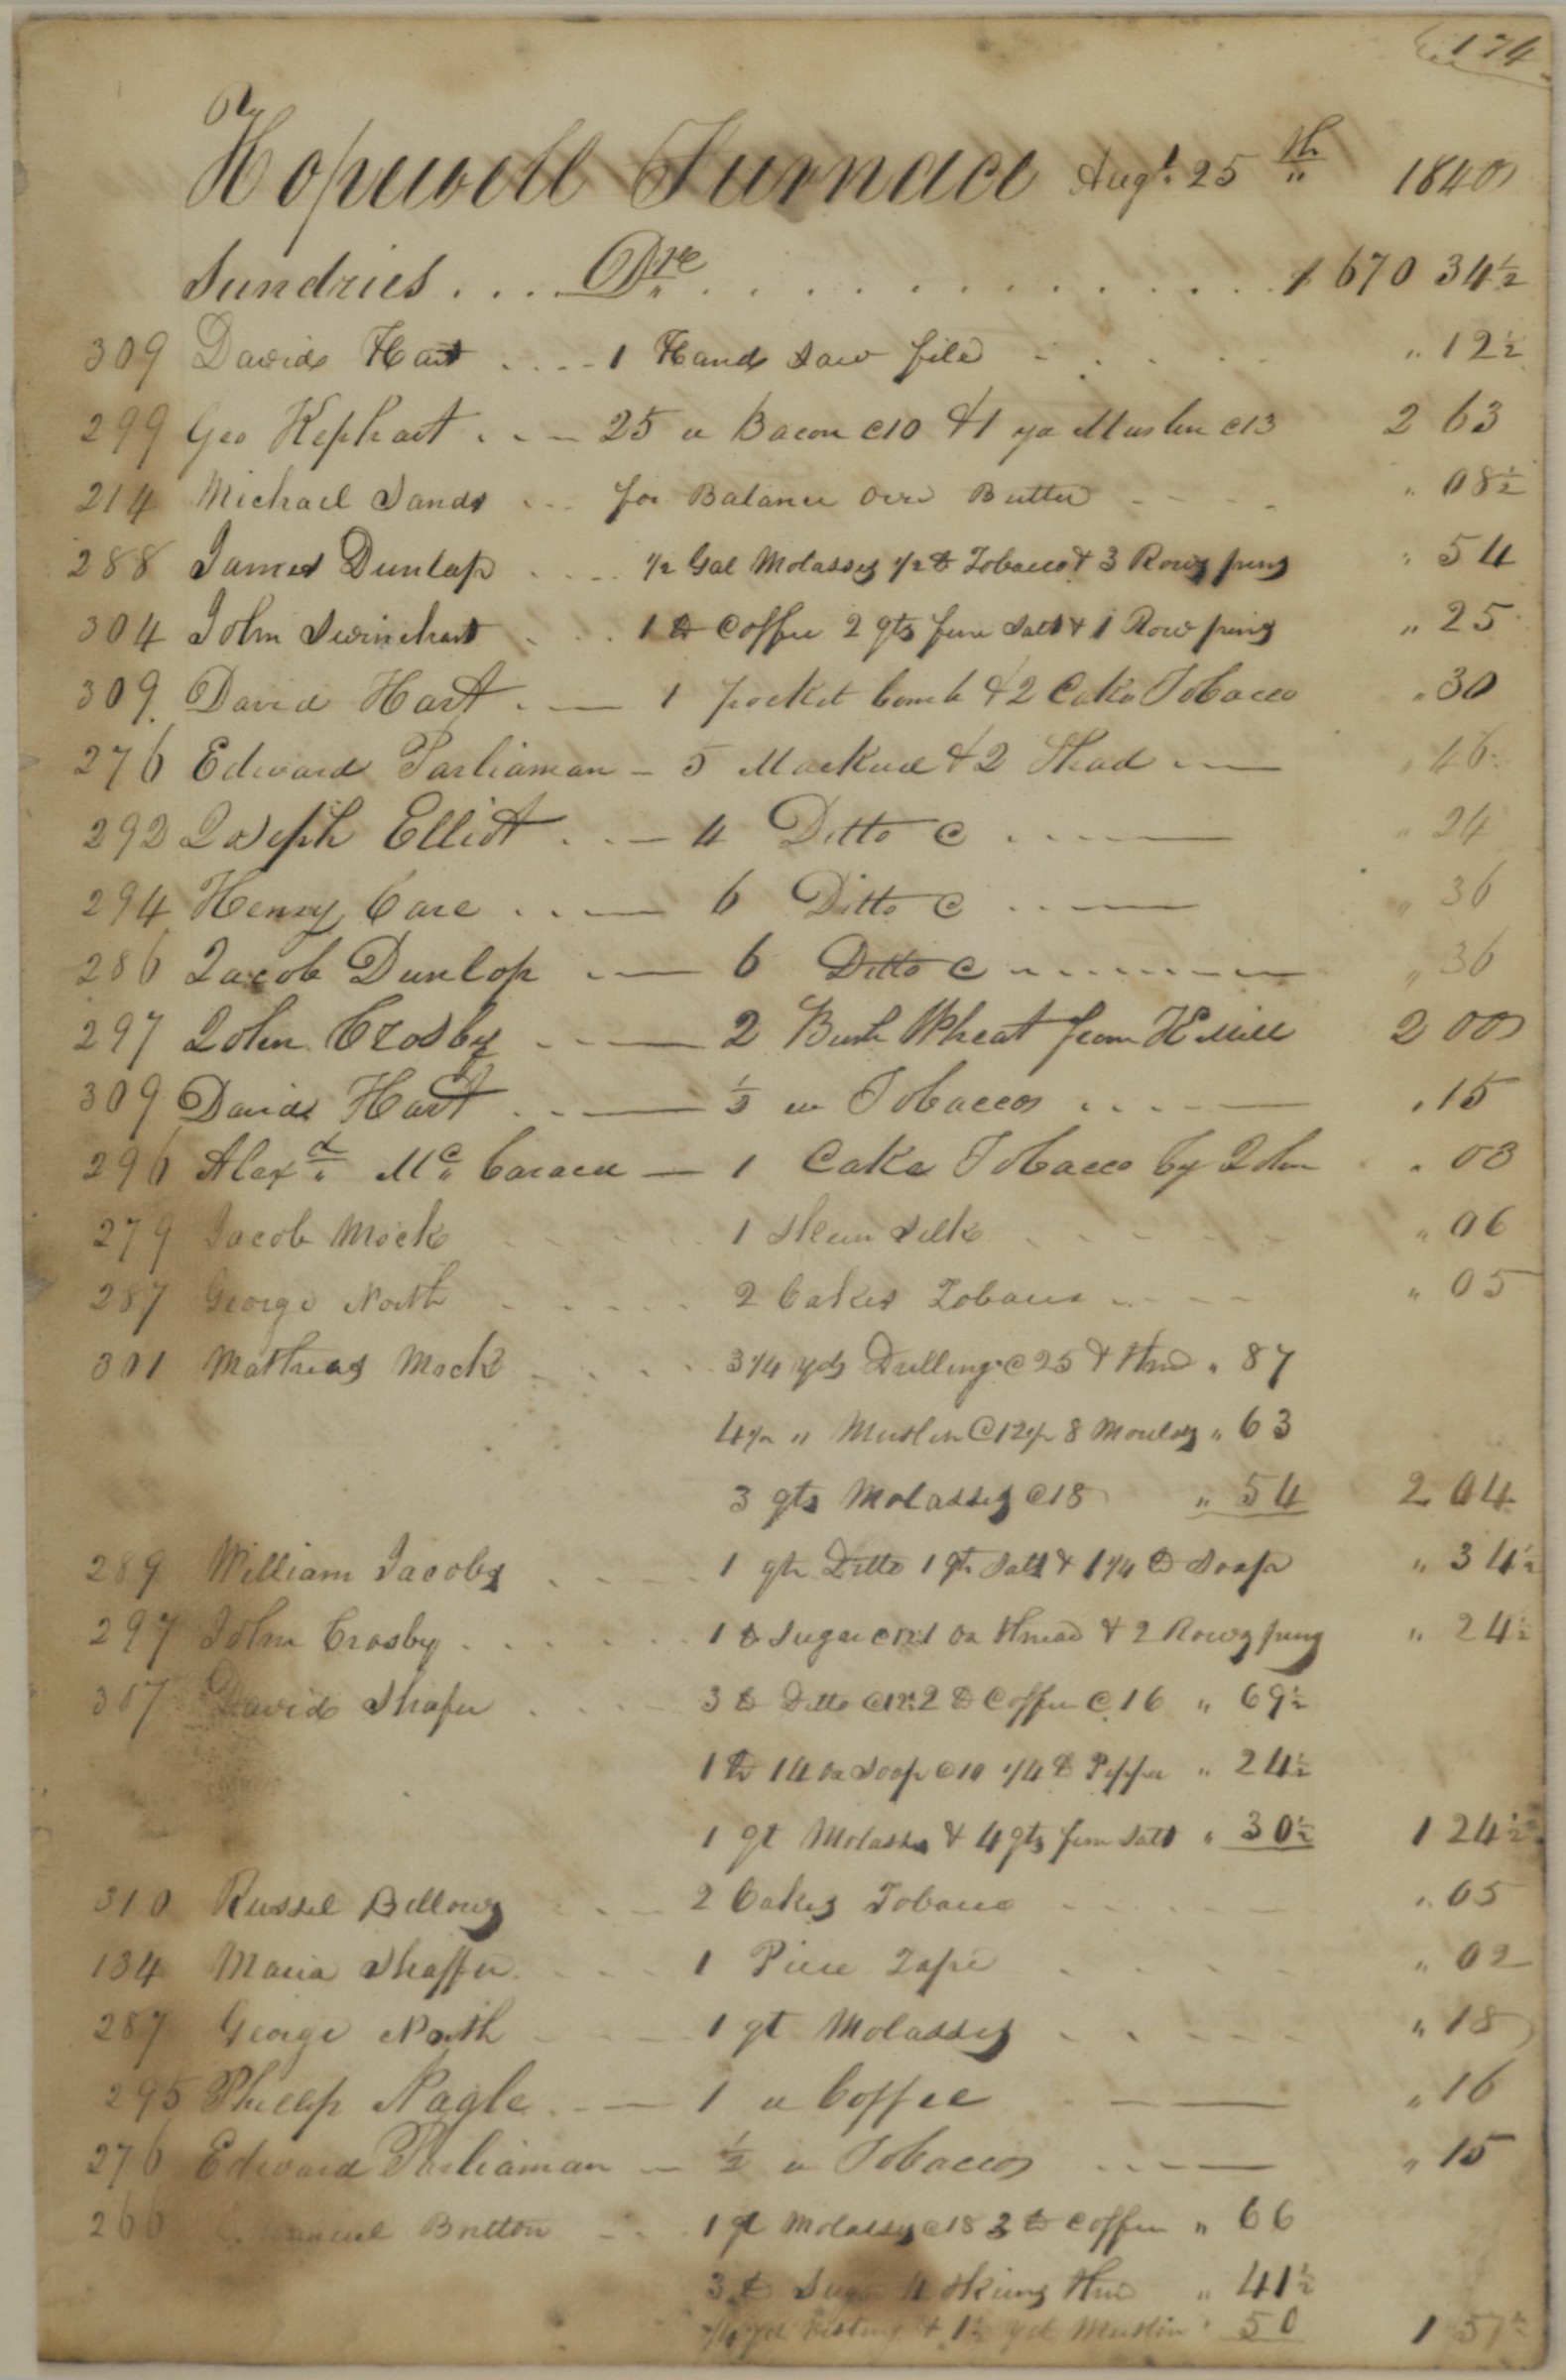 174
Hopewell Furnace Augt. 25th 1840
Sundries .... Drs ............ $ 670 34½
309 David Hart .... 1 Hand Saw file - . . . " 12½
299 Geo Kephart . . - 25 " Bacon @10 & 1 yd Muslin @13 2 63
214 Michael Sands ... for Balance Over Butter - - - - " 08½
288 James Dunlap .... ½ Gal Molasses ½ ℔ Tobacco & 3 Rows pins " 54
304 John Swinehart . . . . 1 ℔ Coffee 2 qts fine Salt & 1 Row pins " 25
309. David Hart . — 1 pocket Comb & 2 Cake Tobacco " 30
276 Edward Parliaman - 5 Mackrel & 2 Shad — " 46
292 Joseph Elliot . . — 4 Ditto @ .... — " 24
294 Henry Care . . . — 6 Ditto @ . . — " 36
286 Jacob Dunlop . — 6 Ditto @ ........ — " 36
297 John Crosby . . — 2 Bush Wheat from H Mill 2 00
309 David Hart . . — ½ " Tobacco .... — " 15
296 Alexd. Mc. Caraca — 1 Cake Tobacco by John " 03
279 Jacob Mock . . . . 1 Skein Silk . . . . . " 06
287 George North . . . . . 2 Cakes Tobacco . . - - " 05
301 Mathias Mock . . . . 3¼ yds Drilling @25 & Thrd " 87
4½ " Muslin @12½ 8 Moulds " 63
3 qts Molasses @18 " 54 2 04
289 William Jacobs . . . . 1 qt Ditto 1 qt Salt & 1¼ ℔ Soap " 34½
297 John Crosby . . . . . . 1 ℔ Sugar @12½ 1 oz Thread & 2 Rows pins " 24½
307 David Shafer . . . . 3 ℔ Ditto @12½ 2 ℔ Coffee @ 16 " 69½
1 ℔ 14 oz Soap @10 ¼ ℔ Pepper " 24½
1 qt Molasses & 4 qts fine Salt " 30½ 1 24½
310 Russel Bellows . . . 2 Cakes Tobacco . . . . " 05
134 Maria Shaffer . . . . 1 Piece Tape . . . . . " 02
287 George North - - - 1 qt Molasses . . . . . " 18
295 Philip Nagle . - — 1 " Coffee — " 16
276 Edward Parliaman — ½ " Tobacco ... — " 15
266 Britton - . . 1 qt Molasses @18 3 ℔ Coffee " 66
3 ℔ Sugar 4 Skeins Thrd " 41½
¼ yd Vesting & 1½ yd Muslin " 50 1 57½